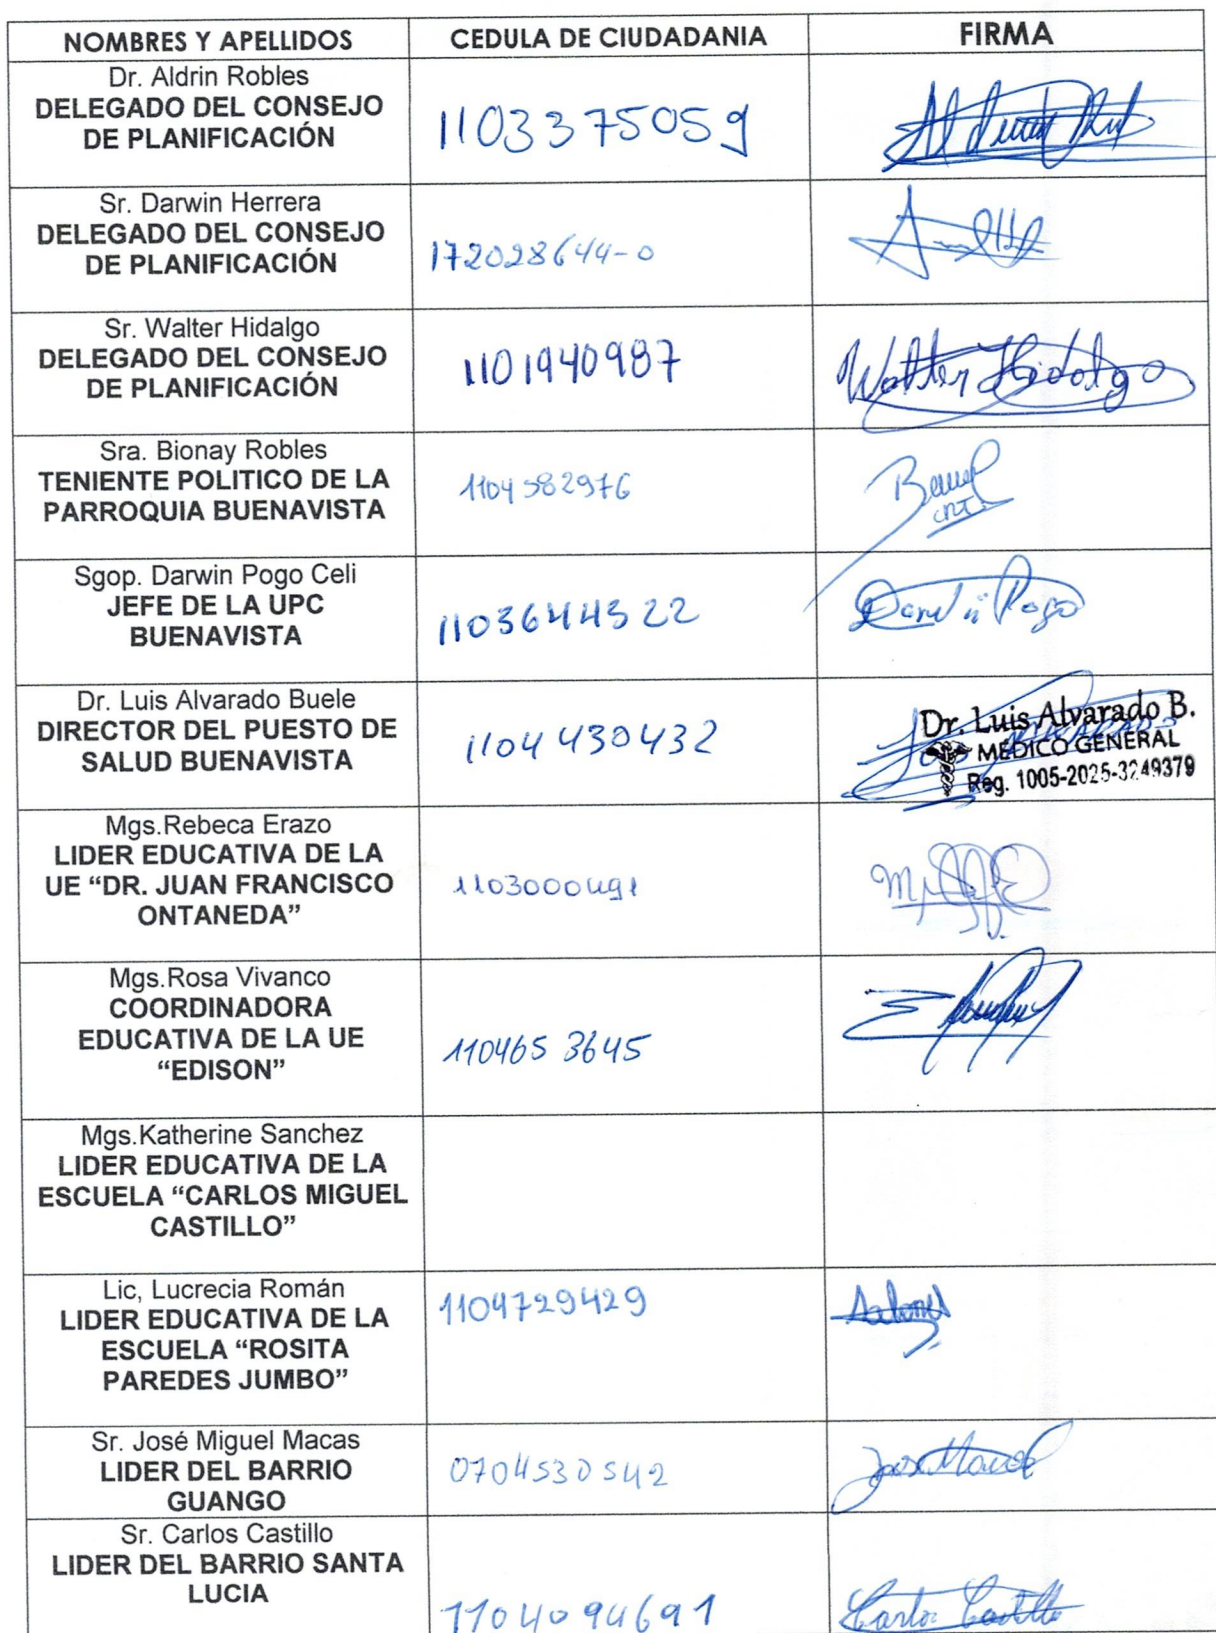 NOMBRES Y APELLIDOS CEDULA DE CIUDADANIA FIRMA
Dr. Aldrin Robles
DELEGADO DEL CONSEJO
DE PLANIFICACIÓN
1103375059
Sr. Darwin Herrera
DELEGADO DEL CONSEJO
DE PLANIFICACIÓN
172028644-0
Sr. Walter Hidalgo
DELEGADO DEL CONSEJO
DE PLANIFICACIÓN
1101940987
Walter Hidalgo
Sra. Bionay Robles
TENIENTE POLITICO DE LA
PARROQUIA BUENAVISTA
1104582976
Sgop. Darwin Pogo Celi
JEFE DE LA UPC
BUENAVISTA
1103644322
Darwin Pogo
Dr. Luis Alvarado Buele
DIRECTOR DEL PUESTO DE
SALUD BUENAVISTA
1104430432
Dr. Luis Alvarado B.
MÉDICO GENERAL
Reg. 1005-2025-3249379
Mgs.Rebeca Erazo
LIDER EDUCATIVA DE LA
UE “DR. JUAN FRANCISCO
ONTANEDA”
1103000491
Mgs.Rosa Vivanco
COORDINADORA
EDUCATIVA DE LA UE
“EDISON”
110465 3645
Mgs.Katherine Sanchez
LIDER EDUCATIVA DE LA
ESCUELA “CARLOS MIGUEL
CASTILLO”
Lic, Lucrecia Román
LIDER EDUCATIVA DE LA
ESCUELA “ROSITA
PAREDES JUMBO”
1104729429
Sr. José Miguel Macas
LIDER DEL BARRIO
GUANGO
0704530542
Sr. Carlos Castillo
LIDER DEL BARRIO SANTA
LUCIA
1104094691
Carlos Castillo